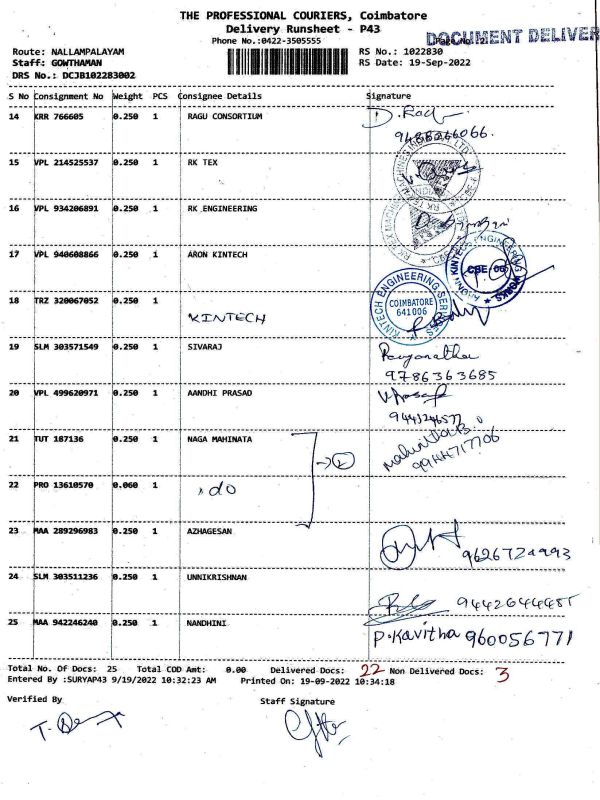 THE PROFESSIONAL COURIERS, Coimbatore
Delivery Runsheet - P43
Phone No.:0422-3505555
DOCUMENT DELIVER
Route: NALLAMPALAYAM
RS No.: 1022830
Staff: GOWTHAMAN
RS Date: 19-Sep-2022
DRS No.: DCJB102283002
S No Consignment No Weight PCS Consignee Details Signature
14 KRR 766605 0.250 1 RAGU CONSORTIUM
15 VPL 214525537 0.250 1 RK TEX
16 VPL 934206891 0.250 1 RK ENGINEERING
17 VPL 940608866 0.250 1 ARON KINTECH
CBE
18 TRZ 320067052 0.250 1 KINTECH
KINTECH ENGINEERING SERVICES
COIMBATORE
641006
19 SLM 303571549 0.250 1 SIVARAJ
9786363685
20 VPL 499620971 0.250 1 AANDHI PRASAD
21 TUT 187136 0.250 1 NAGA MAHINATA
9944717706
22 PRO 13610570 0.060 1 do
23 MAA 289296983 0.250 1 AZHAGESAN
24 SLM 303511236 0.250 1 UNNIKRISHNAN
25 MAA 942246240 0.250 1 NANDHINI
P.Kavitha 960056771
Total No. Of Docs: 25 Total COD Amt: 0.00 Delivered Docs: 22 Non Delivered Docs: 3
Entered By :SURYAP43 9/19/2022 10:32:23 AM Printed On: 19-09-2022 10:34:18
Verified By
Staff Signature